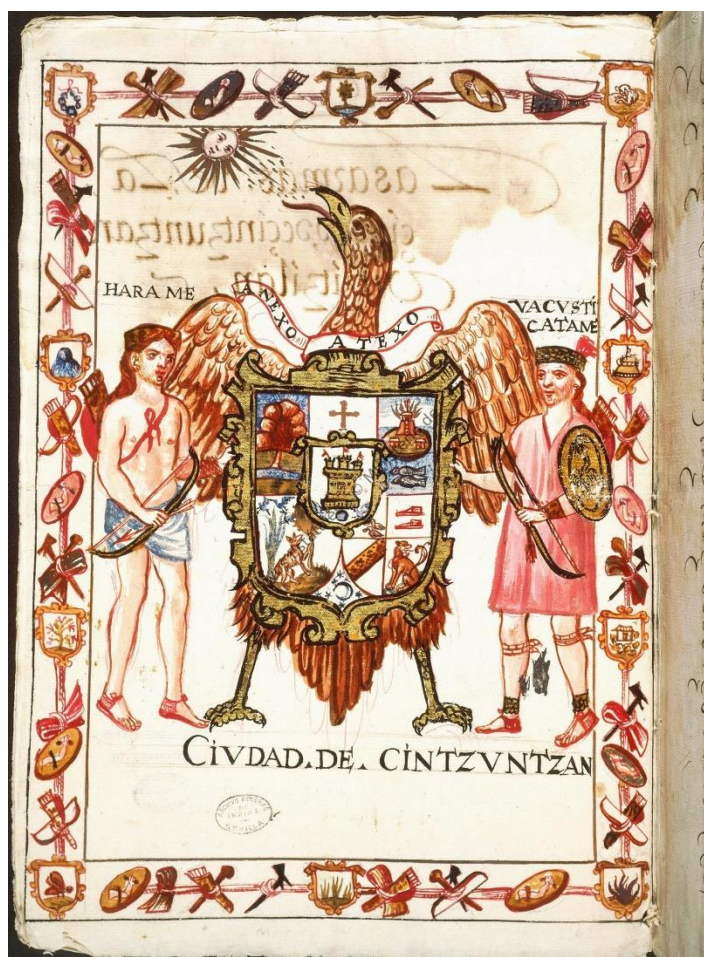 HARA ME
ANEXO A TEXO
VACVSTI
CATAME
CIVDAD. DE. CINTZVNTZAN
ARCHIVO GENERAL
DE
INDIAS
SEVILLA